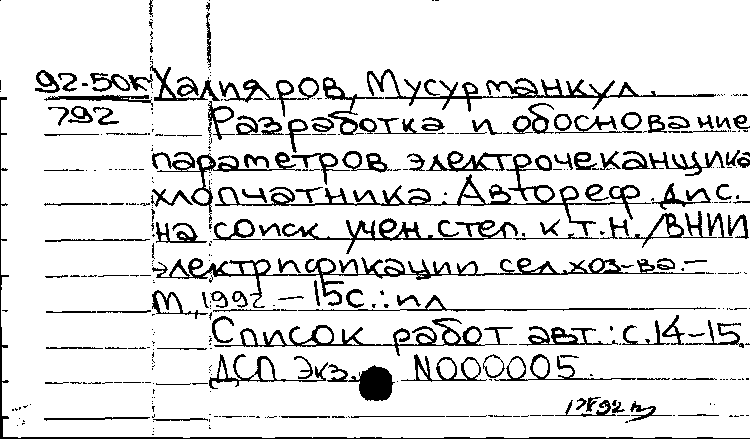 92-50к Халияров, Мусурманкул.
792 Разработка и обоснование
параметров электрочеканщика
хлопчатника: Автореф. дис.
на соиск. учен. степ. к.т.н. /ВНИИ
электрификации сел. хоз-ва.-
М., 1992.-15с.:ил
Список работ авт.: с.14-15.
ДСП. Экз. N000005.